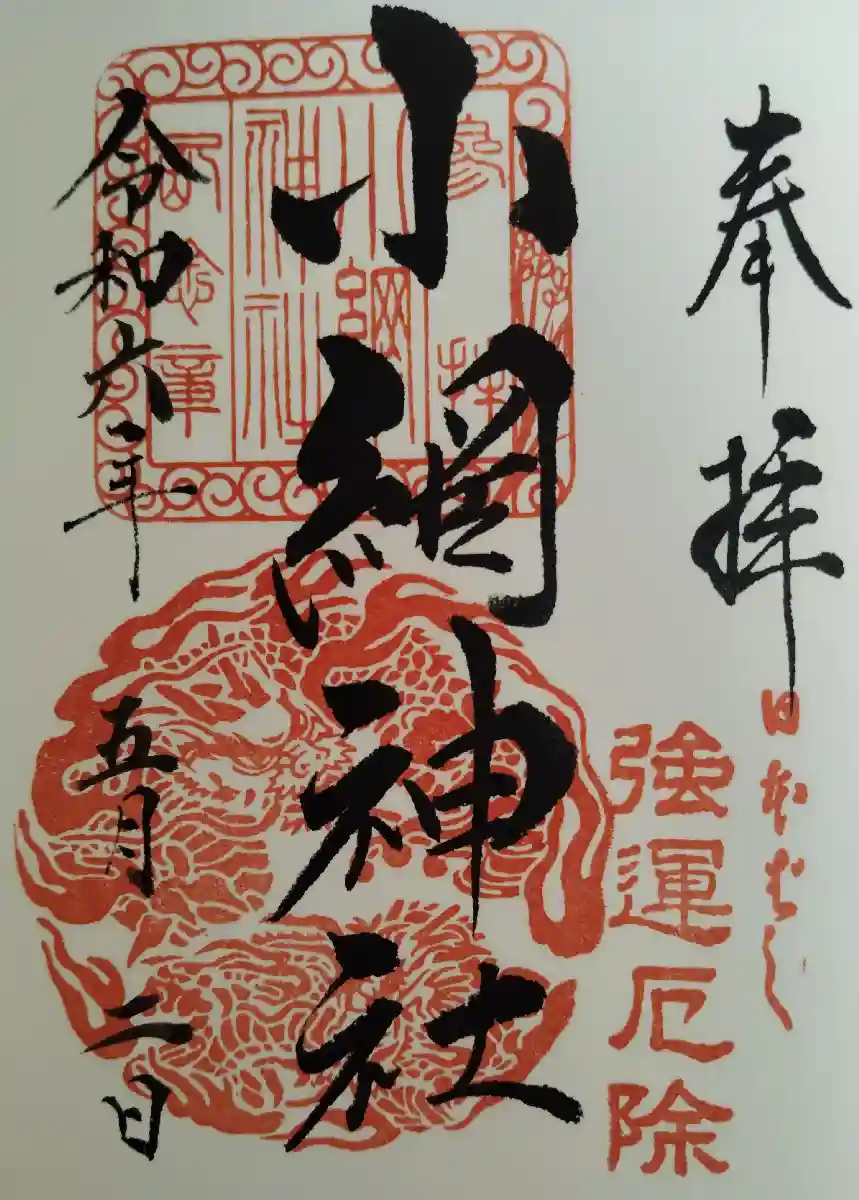 奉拝
日本ばし
強運厄除
小網神社
参拝
小網
神社
記念章
令和六年
五月
二日